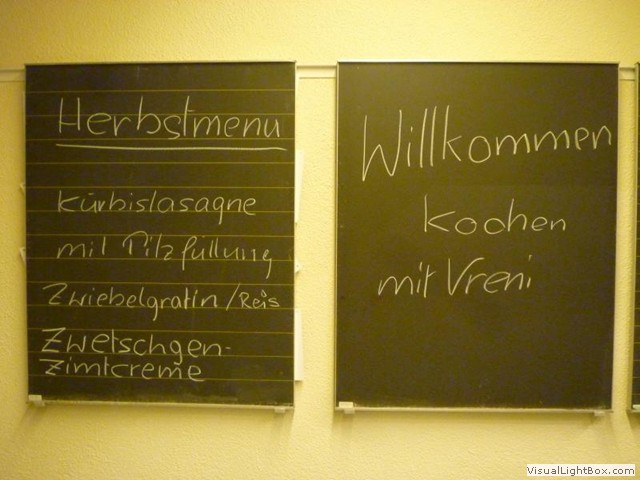 Herbstmenu
Kürbislasagne
mit Pilzfüllung
Zwiebelgratin/Reis
Zwetschgen-
Zimtcreme
Willkommen
Kochen
mit Vreni
VisualLightBox.com